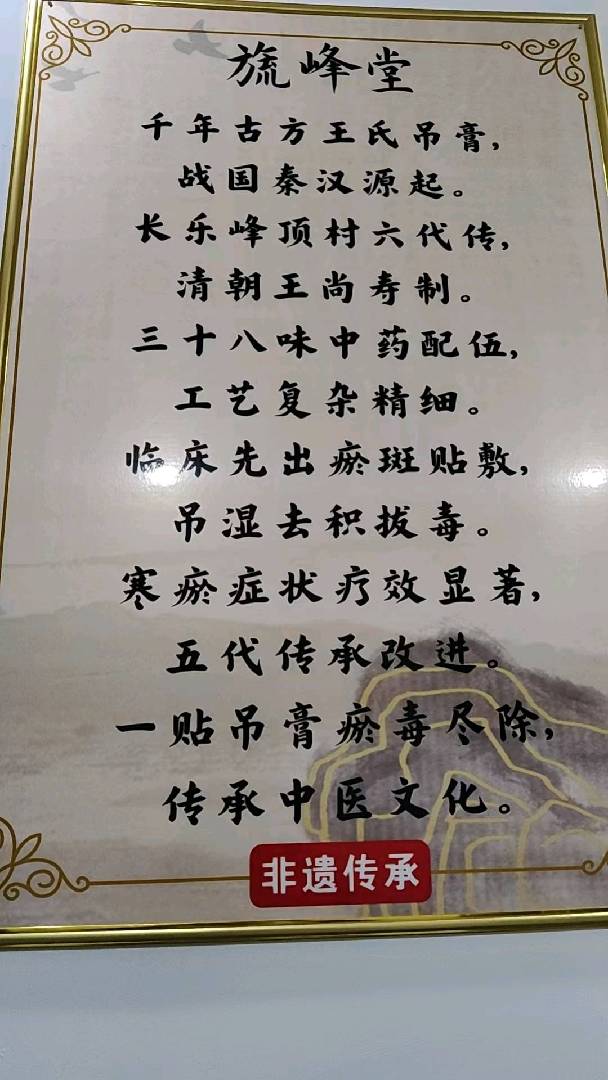 旒峰堂
千年古方王氏吊膏，
战国秦汉源起。
长乐峰顶村六代传，
清朝王尚寿制。
三十八味中药配伍，
工艺复杂精细。
临床先出瘀斑贴敷，
吊湿去积拔毒。
寒瘀症状疗效显著，
五代传承改进。
一贴吊膏瘀毒尽除，
传承中医文化。
非遗传承